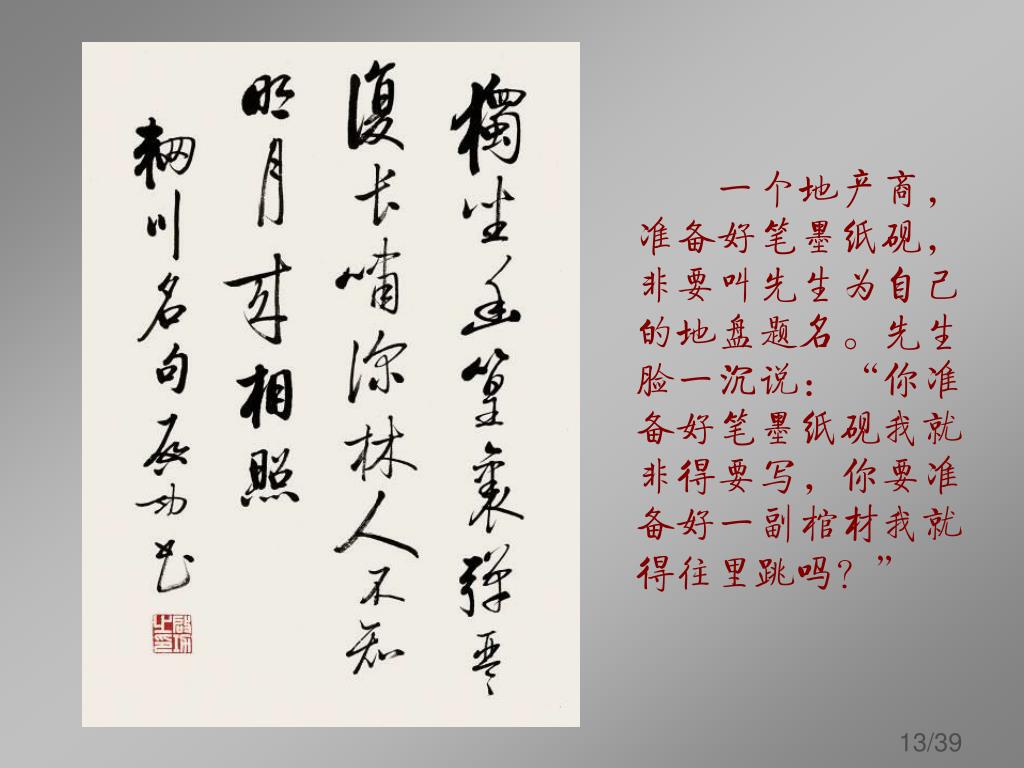 獨坐幽篁裏彈琴
復长嘯深林人不知
明月来相照
輞川名句 启功书
啟功之印
一个地产商，
准备好笔墨纸砚，
非要叫先生为自己
的地盘题名。先生
脸一沉说：“你准
备好笔墨纸砚我就
非得要写，你要准
备好一副棺材我就
得往里跳吗？”
13/39